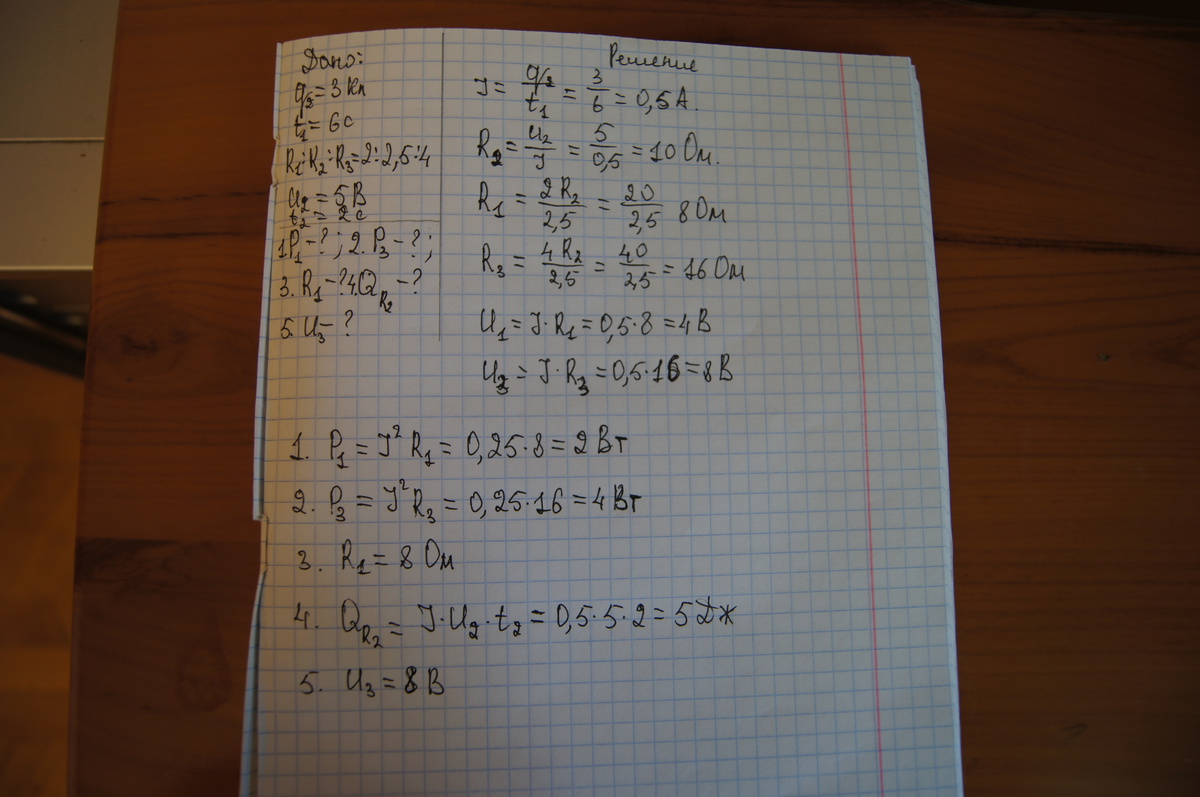 Дано:
q₃ = 3 Кл
t₁ = 6с
R₁:R₂:R₃ = 2:2,5:4
U₂ = 5В
t₂ = 2с
1.P₁-?; 2. P₃-?;
3. R₁-? 4.Q_R₂-?
5. U₃-?
Решение
J = q₃/t₁ = 3/6 = 0,5 А.
R₂ = U₂/J = 5/0,5 = 10 Ом.
R₁ = 2R₂/2,5 = 20/2,5 8 Ом
R₃ = 4R₂/2,5 = 40/2,5 = 16 Ом
U₁ = J·R₁ = 0,5·8 = 4 В
U₃ = J·R₃ = 0,5·16 = 8 В
1. P₁ = J²R₁ = 0,25·8 = 2 Вт
2. P₃ = J²R₃ = 0,25·16 = 4 Вт
3. R₁ = 8 Ом
4. Q_R₂ = J·U₂·t₂ = 0,5·5·2 = 5 Дж
5. U₃ = 8 В